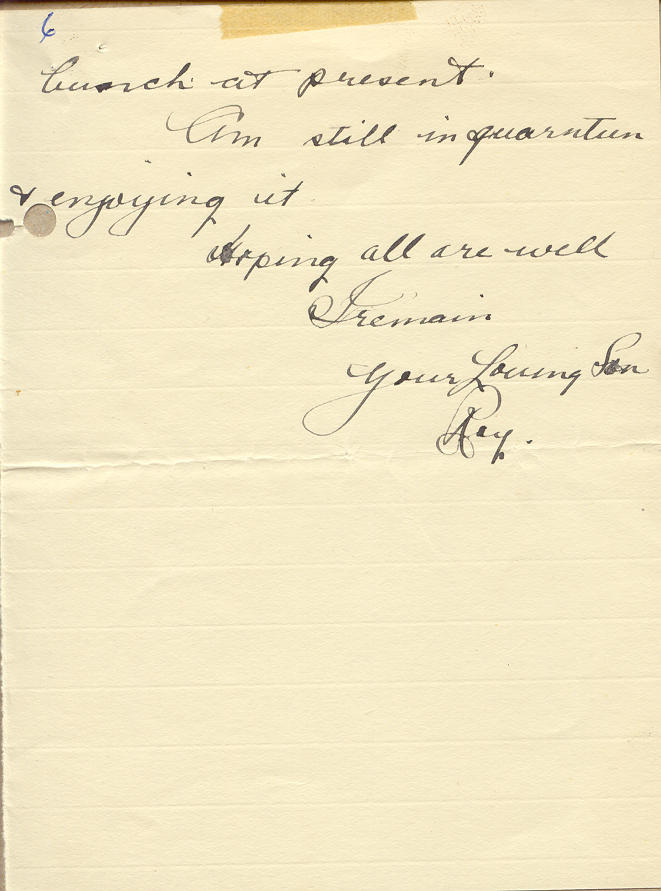 6
bunch at present.
Am still in quarntun
& enjoying it
Hoping all are well
I remain
Your Loving Son
Roy.